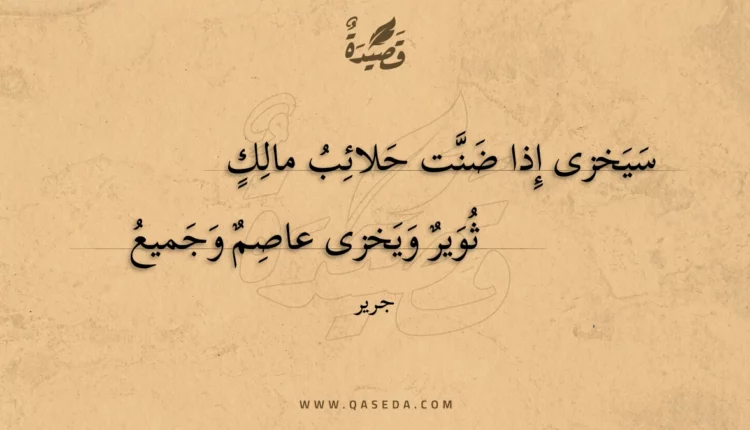 قَصِيْدَةٌ
سَيَخزى إِذا ضَنَّت حَلائِبُ مالِكٍ
ثُوَيرٌ وَيَخزى عاصِمٌ وَجَميعُ
جرير
WWW.QASEDA.COM